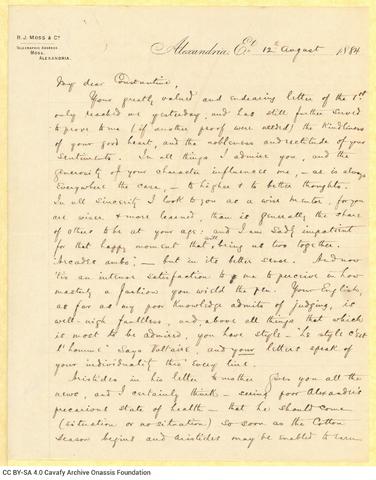 R. J. MOSS & Co.
TELEGRAPHIC ADDRESS
MOSS,
ALEXANDRIA.
Alexandria, Et. 12th August 1884
My dear Constantine,
Your greatly valued and endearing letter of the 1st
only reached me yesterday, and has still further served
to prove to me (if another proof were needed) the kindliness
of your good heart, and the nobleness and rectitude of your
sentiments. In all things I admire you, and the
generosity of your character influences me, – as is always
everywhere the case, – to higher & to better thoughts.
In all sincerity I look to you as a wise mentor, for you
are wiser & more learned, than is generally the share
of others to be at your age: and I am sadly impatient
for that happy moment that will bring us two together.
"Arcades ambo", – but in its better sense. And now
'tis an intense satisfaction to me to perceive in how
masterly a fashion you wield the pen. Your English,
as far as my poor knowledge admits of judging, is
well-nigh faultless, and, above all things that which
is most to be admired, you have style – "le style c'est
l'homme" says Voltaire, and your letters speak of
your individuality in every line.
Aristides in his letter to mother gives you all the
news, and I certainly think – seeing poor Alexander's
precarious state of health – that he should come
(situation or no situation) so soon as the Cotton
Season begins and Aristides may be enabled to earn
CC BY-SA 4.0 Cavafy Archive Onassis Foundation